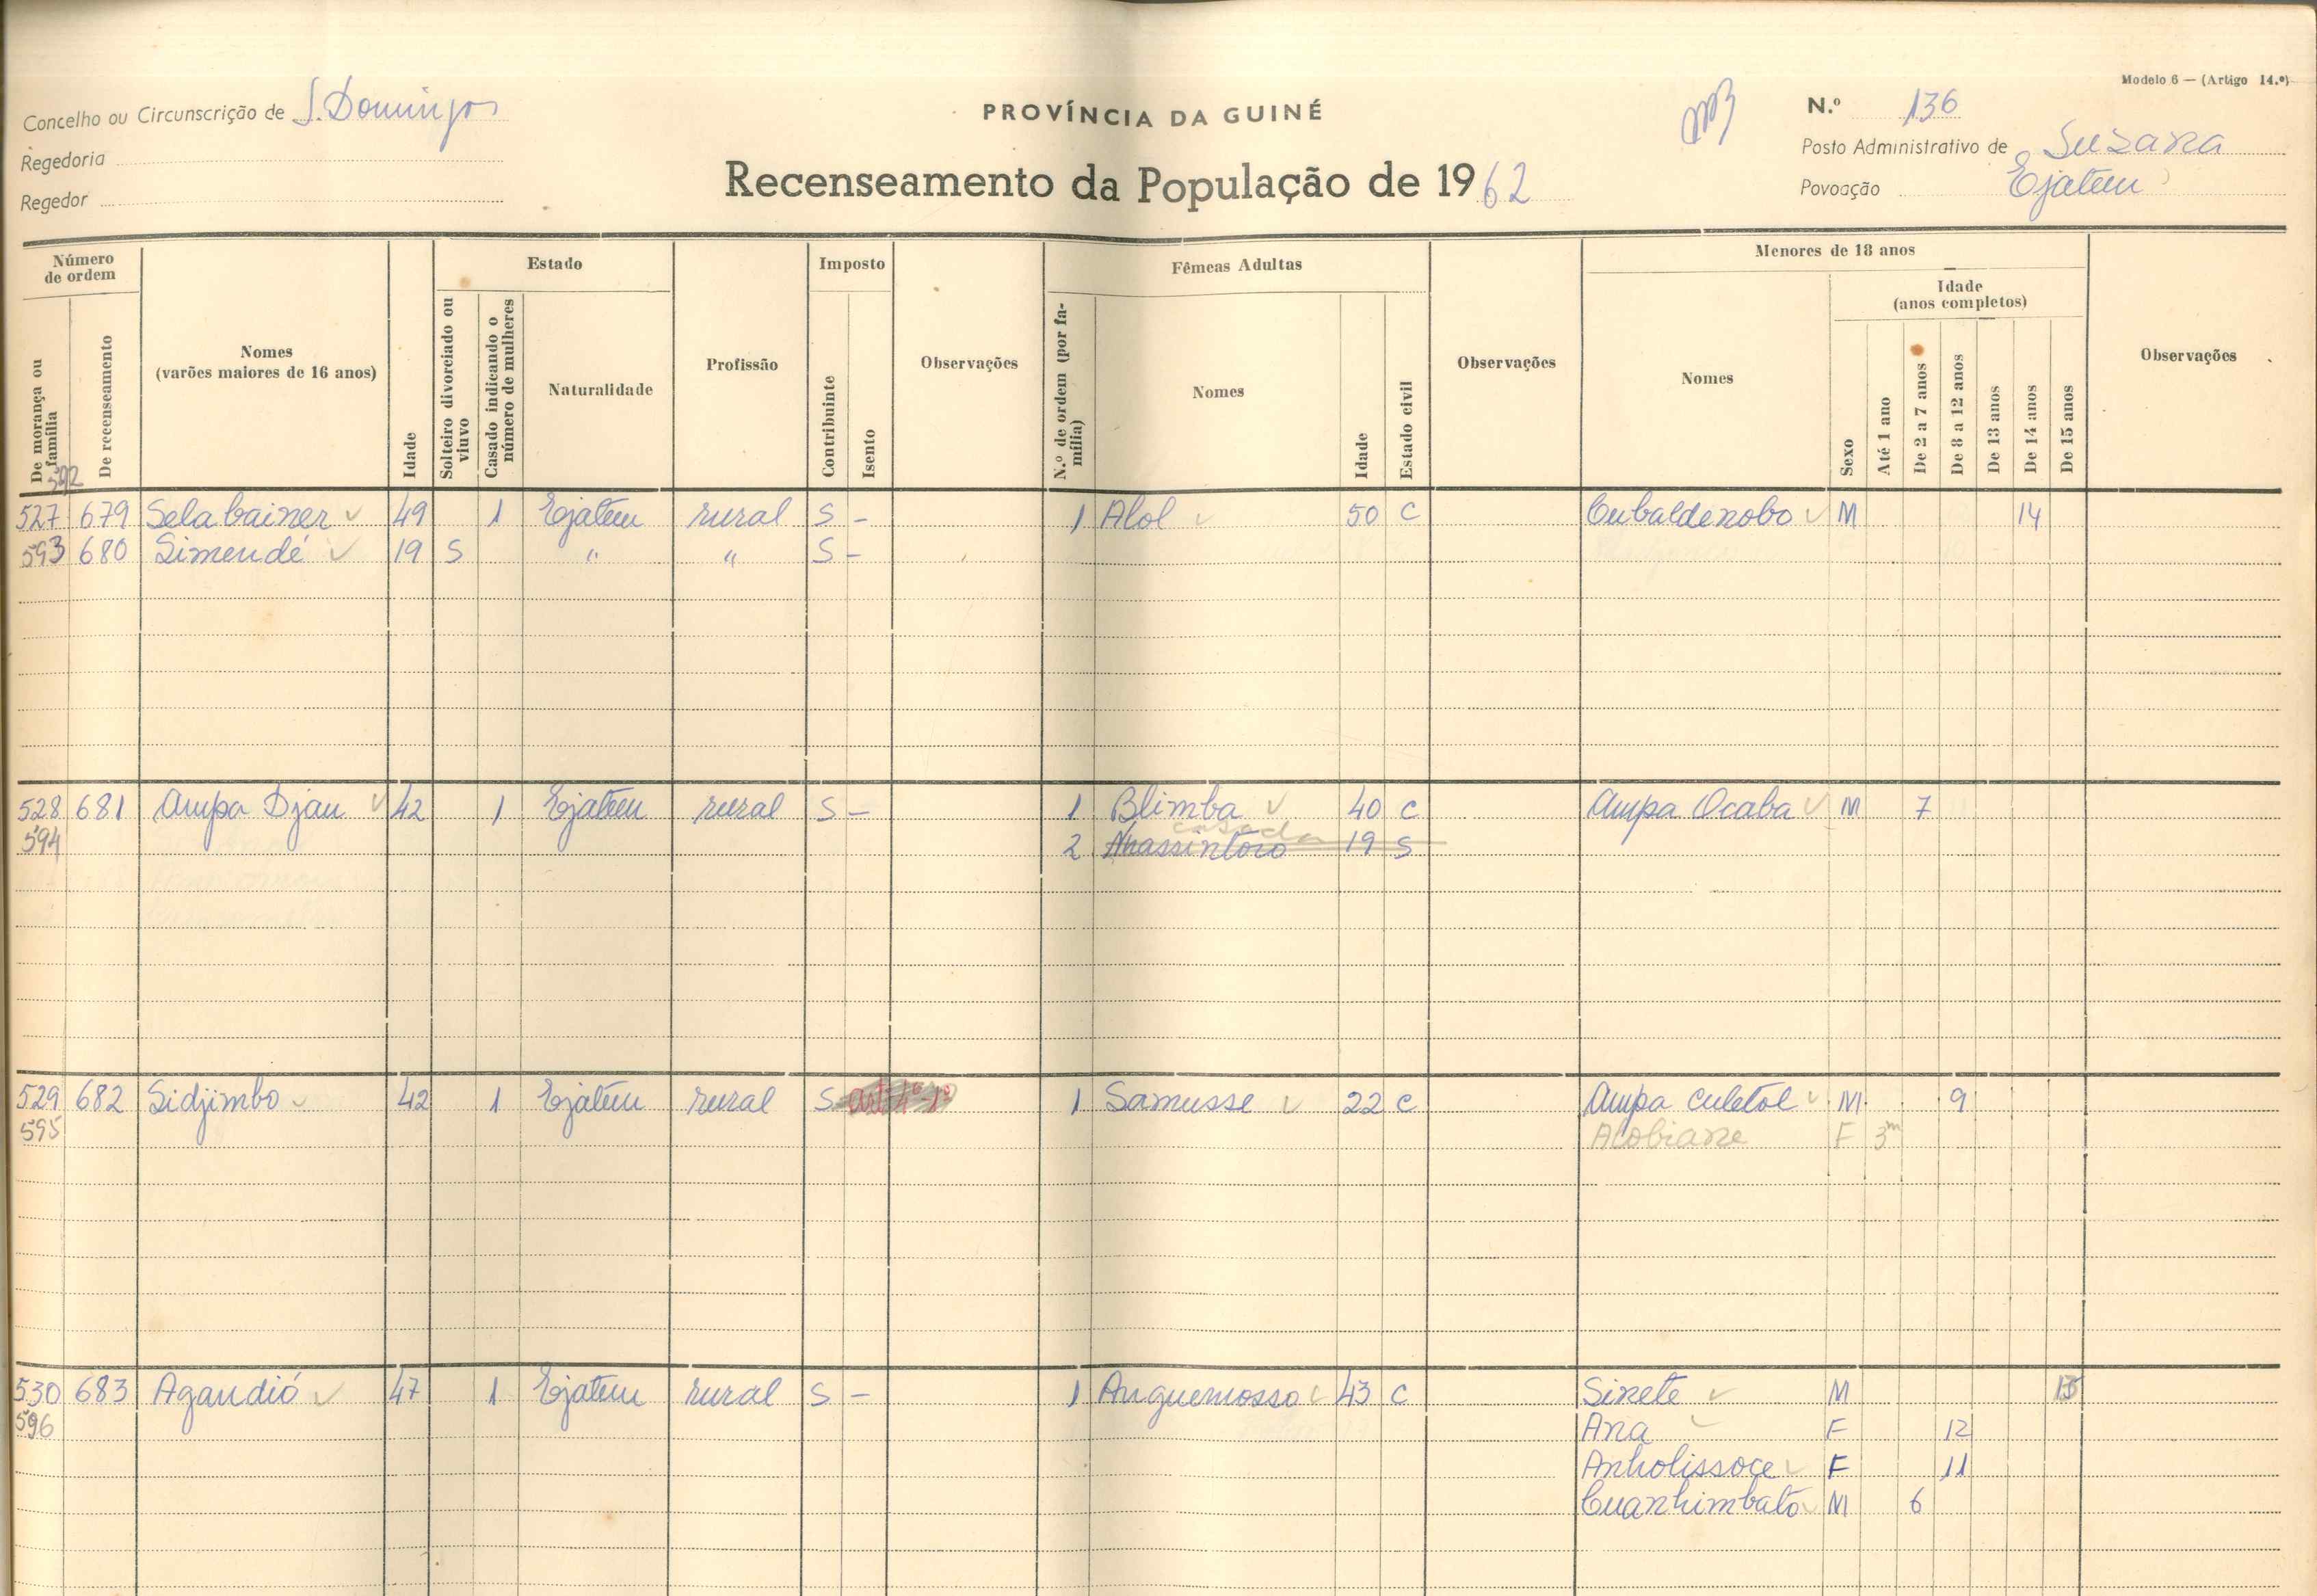 Modelo 6 — (Artigo 14.º)
Concelho ou Circunscrição de S. Domingos
PROVÍNCIA DA GUINÉ
N.º 136
Regedoria
Posto Administrativo de Suzana
Regedor
Recenseamento da População de 1962
Povoação Ejatem
Número de ordem
Estado
Imposto
Fêmeas Adultas
Menores de 18 anos
Idade (anos completos)
De morança ou família
De recenseamento
Nomes (varões maiores de 16 anos)
Idade
Solteiro divorciado ou viuvo
Casado indicando o número de mulheres
Naturalidade
Profissão
Contribuinte
Isento
Observações
N.º de ordem (por família)
Nomes
Idade
Estado civil
Observações
Nomes
Sexo
Até 1 ano
De 2 a 7 anos
De 8 a 12 anos
De 13 anos
De 14 anos
De 15 anos
Observações
592
527 679 Selabainer 49 1 Ejatem rural S - 1 Alol 50 C Cubaldenobo M 14
593 680 Simendé 19 S " " S -
528 681 Ampa Djau 42 1 Ejatem rural S - 1 Blimba 40 C Ampa Ocaba M 7
casada
594 2 Anassintoro 19 S
529 682 Sidjimbo 42 1 Ejatem rural S 1 Samusse 22 C Ampa Culetol M 9
595 Alobiane F 3m
530 683 Agandió 47 1 Ejatem rural S - 1 Anguemosso 43 C Sinete M 15
596 Ana F 12
Anholissoce F 11
Cuanhimbato M 6